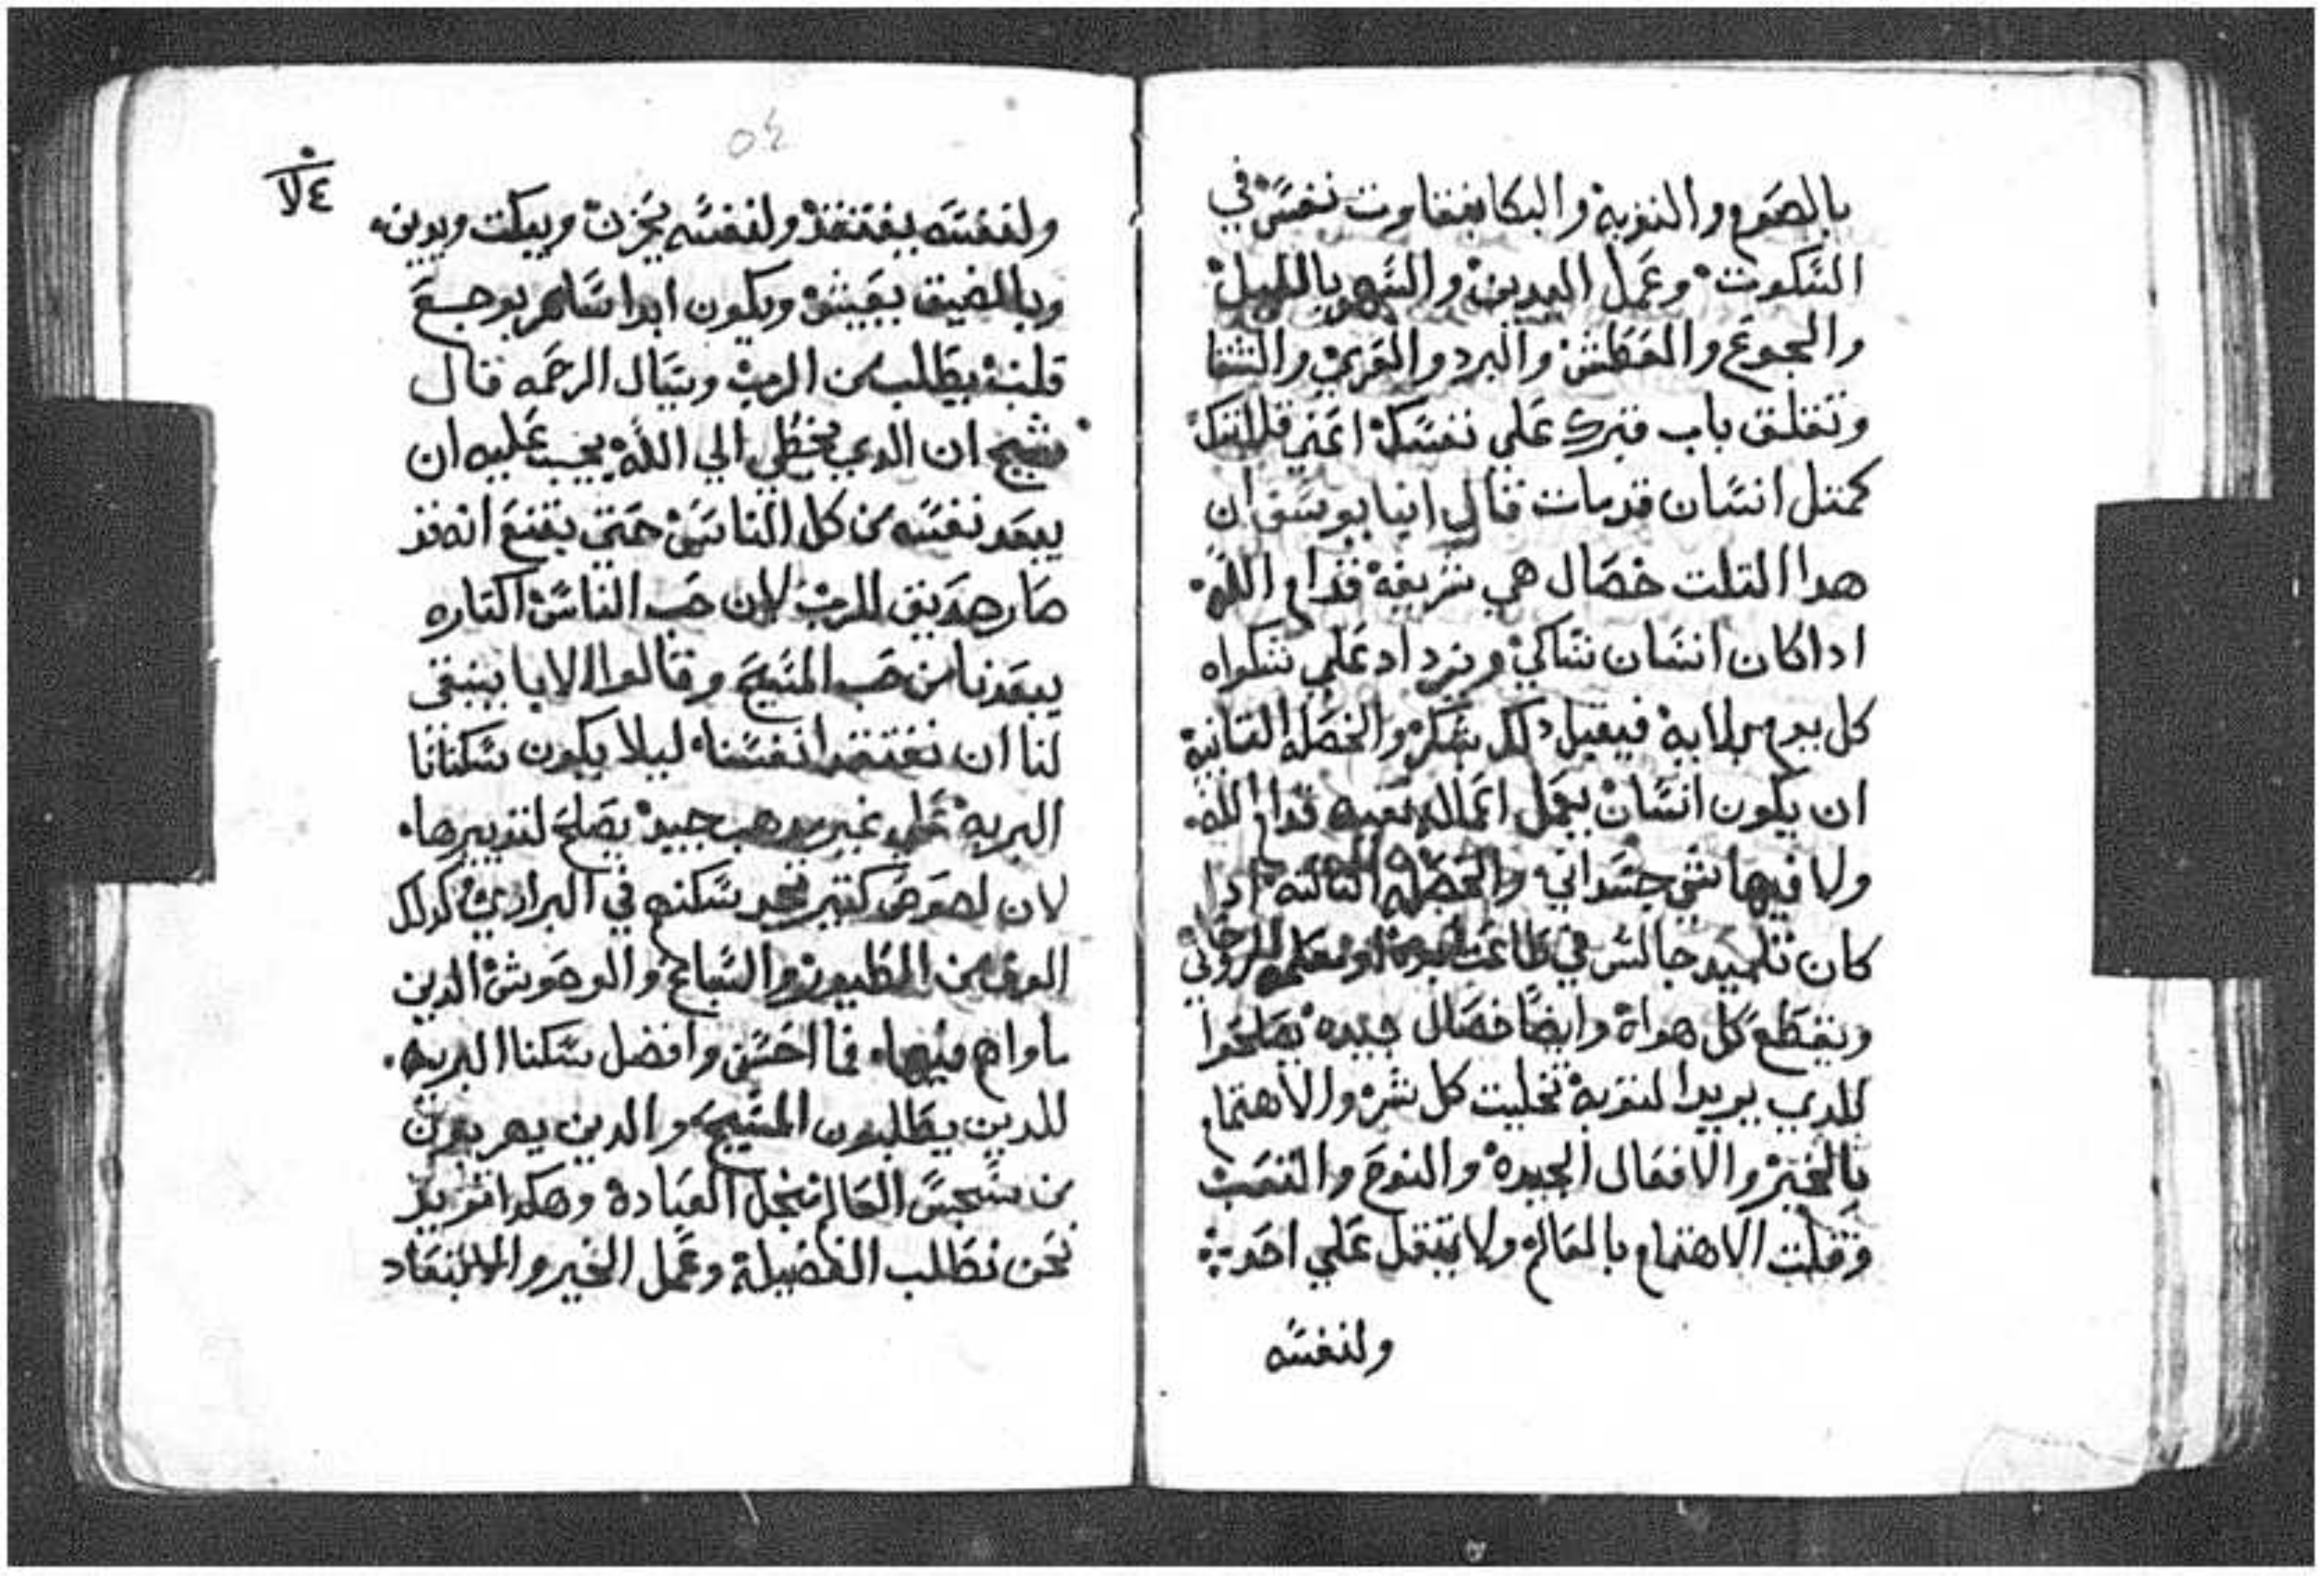 بالصوم والتوبه والبكا بغفاوت نفس في
السكوت وعمل اليدين والسهر بالليل
والجوع والعطش والبرد والعري والشقا
وتغلق باب قبرك علي نفسك اعني قلايتك
كمتل انسان قد مات قال انبا يوسف ان
هدا التلت خصال هي شريفه قدام الله
ادا كان انسان شاكي وتزداد علي شكواه
كل يوم بلايه فيقبل دلك بشكر والخصله التانيه
ان يكون انسان يعمل اعماله نقيه قدام الله
ولا فيها شي جسداني والخصله التالته ادا
كان تلميد جالس في طاعت ابوه او معلمه الروحاني
ويقطع كل هواه وايضا خصال جيده يصلحوا
للدي يريد التوبه تخليت كل شر والاهتمام
بالخير والافعال الجيده والنوح والتعب
وقلت الاهتمام بالعالم ولا يتقل علي احد
ولنفسه
٥٤
ولنفسه يفتقد ولنفسه يحزن ويبكت ويدين
وبالضيق يعيش ويكون ابدا ساهر بوجع
قلبه يطلب من الرب ويسال الرحمه قال
شيخ ان الدي يخطي الي الله يجب عليه ان
يبعد نفسه من كل الناس حتي يقنع انه قد
صار صديق للرب لان حب الناس اكتاره
يبعدنا من حب المسيح وقالوا الابا ينبغي
لنا ان نفتقد انفسنا ليلا يكون سكنانا
البريه علي غير مدهب جيد يصلح لتدبيرها
لان لصوص كتير نجد سكنهم في البراري كدلك
الوف من الطيور والسباع والوحوش الدين
ماواهم فيها فما احسن وافضل سكنا البريه
للدين يطلبون المسيح والدين يهربون
من سجس العالم لاجل العباده وهكدا نريد
نحن نطلب الفضيله وعمل الخير والابتعاد